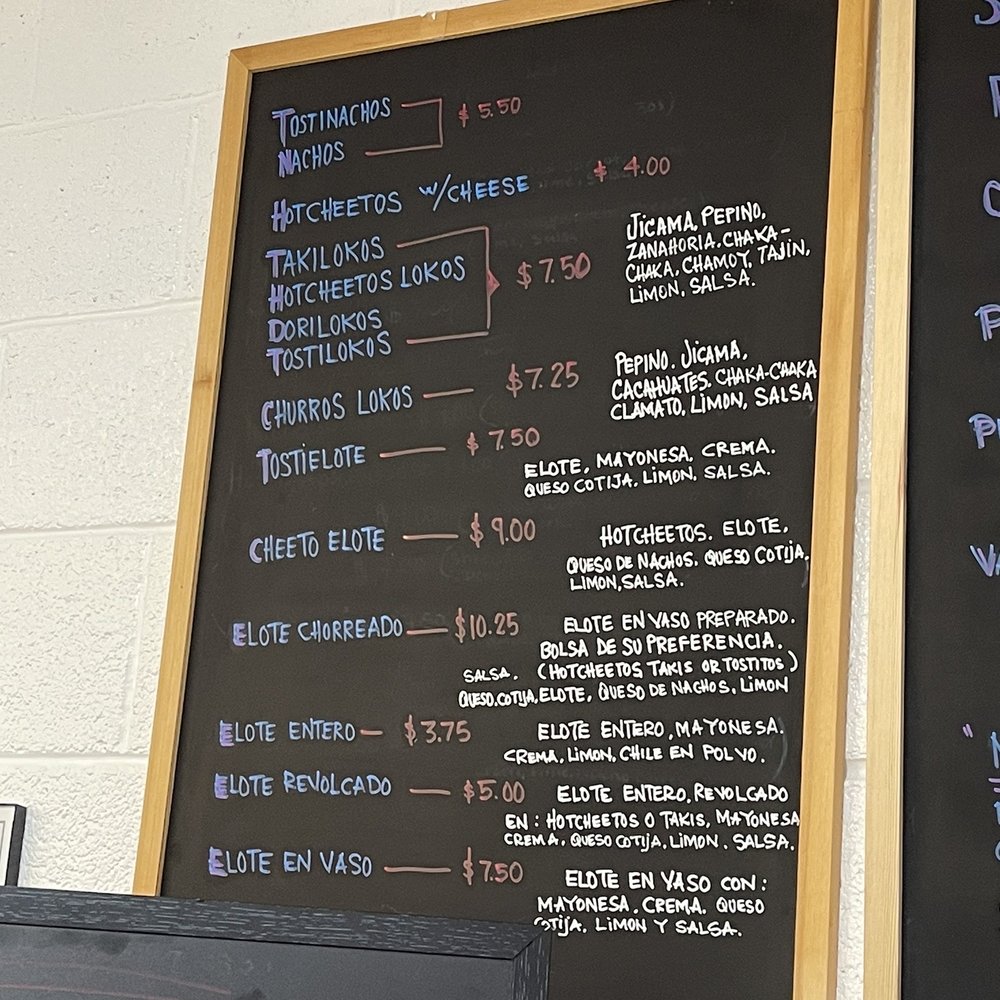 TOSTINACHOS
NACHOS
$5.50
HOTCHEETOS W/CHEESE $4.00
TAKILOKOS
HOTCHEETOS LOKOS
DORILOKOS
TOSTILOKOS
$7.50
JICAMA, PEPINO,
ZANAHORIA. CHAKA-
CHAKA, CHAMOY, TAJIN,
LIMON, SALSA.
CHURROS LOKOS $7.25
PEPINO. JICAMA,
CACAHUATES. CHAKA-CHAKA
CLAMATO, LIMON, SALSA
TOSTIELOTE $7.50
ELOTE, MAYONESA. CREMA.
QUESO COTIJA. LIMON. SALSA.
CHEETO ELOTE $9.00
HOTCHEETOS. ELOTE,
QUESO DE NACHOS. QUESO COTIJA,
LIMON, SALSA.
ELOTE CHORREADO $10.25
ELOTE EN VASO PREPARADO.
BOLSA DE SU PREFERENCIA.
SALSA. (HOTCHEETOS, TAKIS OR TOSTITOS)
QUESO.COTIJA, ELOTE, QUESO DE NACHOS, LIMON
ELOTE ENTERO $3.75
ELOTE ENTERO, MAYONESA.
CREMA, LIMON, CHILE EN POLVO.
ELOTE REVOLCADO $5.00
ELOTE ENTERO, REVOLCADO
EN: HOTCHEETOS O TAKIS, MAYONESA
CREMA. QUESO COTIJA, LIMON. SALSA.
ELOTE EN VASO $7.50
ELOTE EN VASO CON:
MAYONESA. CREMA. QUESO
COTIJA, LIMON Y SALSA.